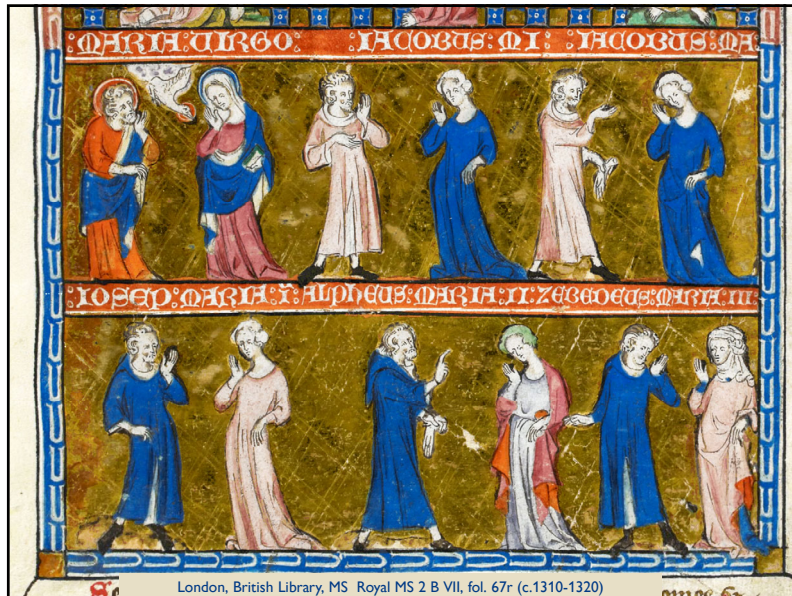 :MARIA:VIRGO: :IACOBUS:MI: :IACOBUS:MA
:IOSEP:MARIA:I:ALPHEUS:MARIA:II:ZEBEDEUS:MARIA:III:
London, British Library, MS Royal MS 2 B VII, fol. 67r (c.1310-1320)